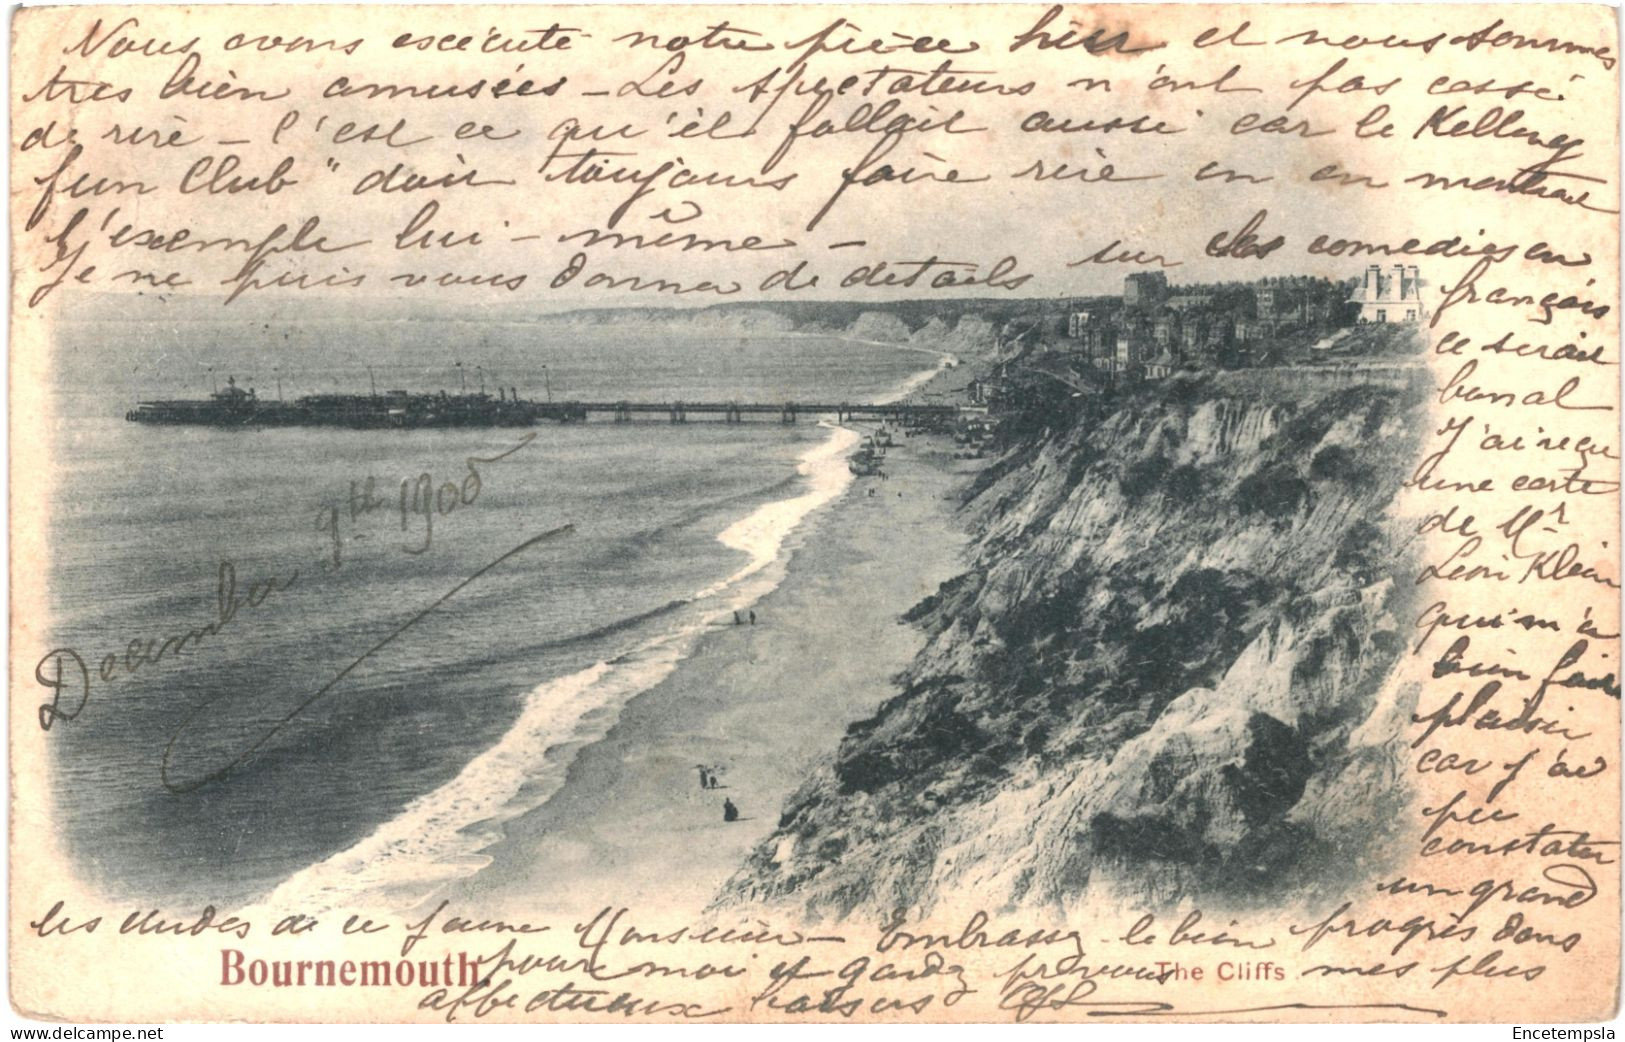 Nous avons exécuté notre pièce hier et nous sommes
très bien amusées – Les spectateurs n'ont pas cessé
de rire – c'est ce qu'il fallait aussi car le Kelling
fun Club" doit toujours faire rire en en montrant
l'exemple lui-même –
Je ne puis vous donner de détails sur les comédies en
français
ce serait
banal
J'ai reçu
une carte
de Mr
Léon Klein
qui m'a
bien faire
plaisir
car j'ai
pu
constater
un grand
progrès dans
les études de ce jeune Monsieur – Embrassez-le bien
pour moi et gardez pr vous mes plus
affectueux baisers
December 9th 1900
Bournemouth.
The Cliffs
Encetempsla